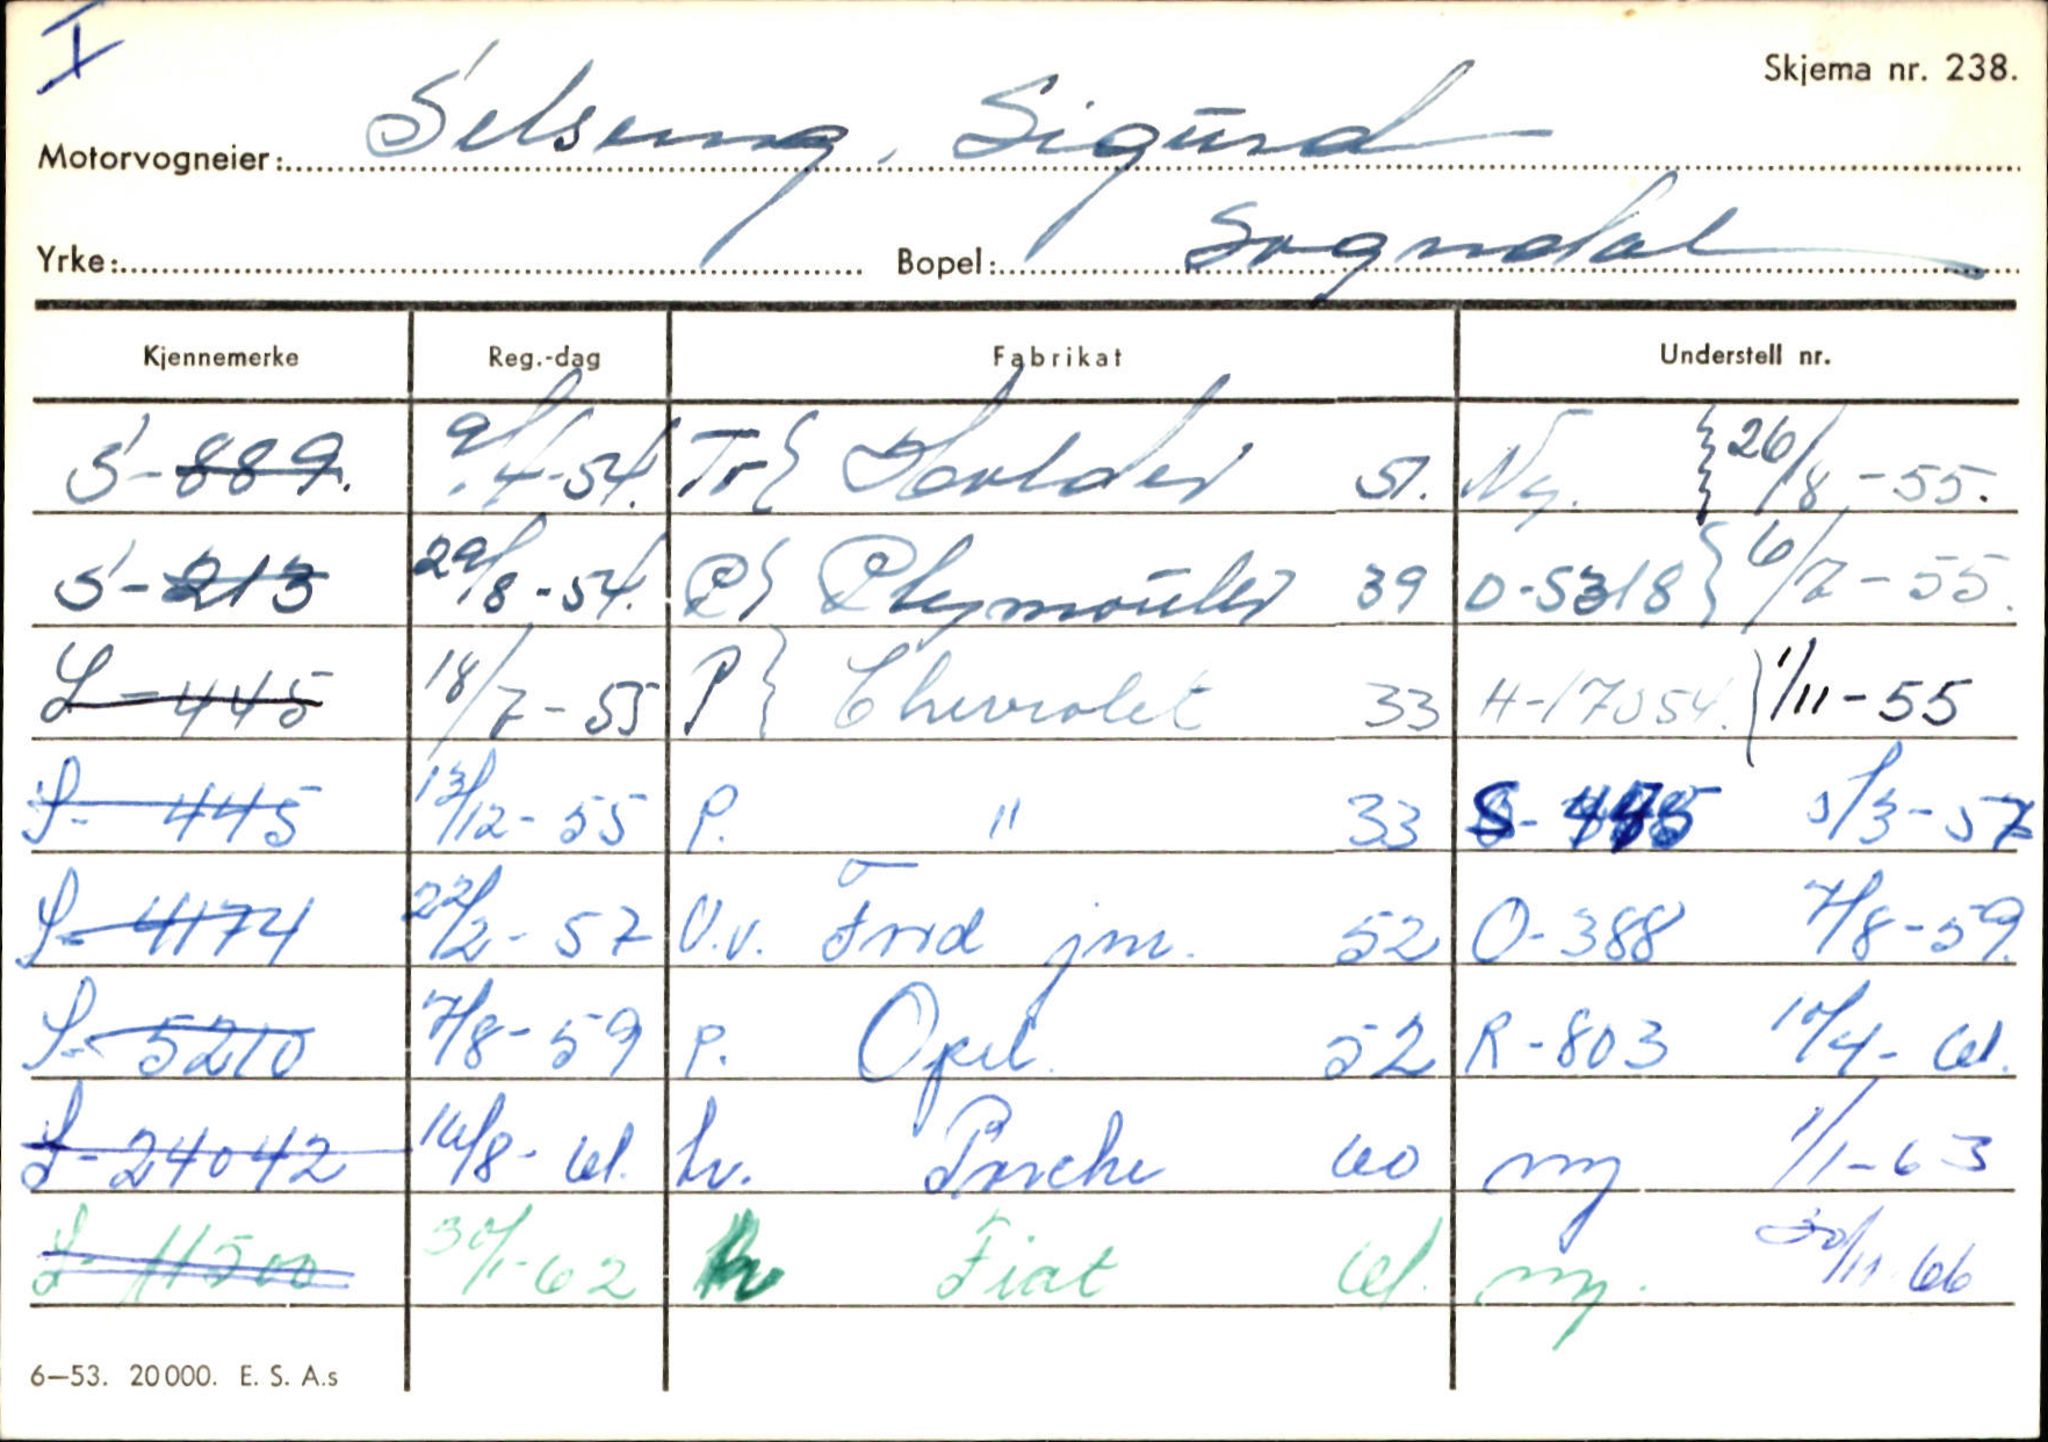 I
Skjema nr. 238.
Motorvogneier: Selseng, Sigurd
Yrke: Bopel: Sogndal
Kjennemerke Reg.-dag Fabrikat Understell nr.
S-889. 9/4-54. Tr. 51. Ny. 26/8-55.
S-213 29/8-54. P Plymouth 39 D-5318 6/7-55.
S-445 18/7-55 P Chevrolet 33 H-17054. 1/11-55
S-445 13/12-55 P. " 33 5/3-57
S-4174 22/2-57 V.v. Ford jm. 52 O-388 7/8-59.
S-5210 7/8-59 P. Opel 52 R-803 10/4-61.
S-24042 16/8-61. Lv. Porche 60 ny 1/1-63
S-11500 30/1-62 Fiat 61. ny. 30/11-66
6—53. 20000. E. S. A.s